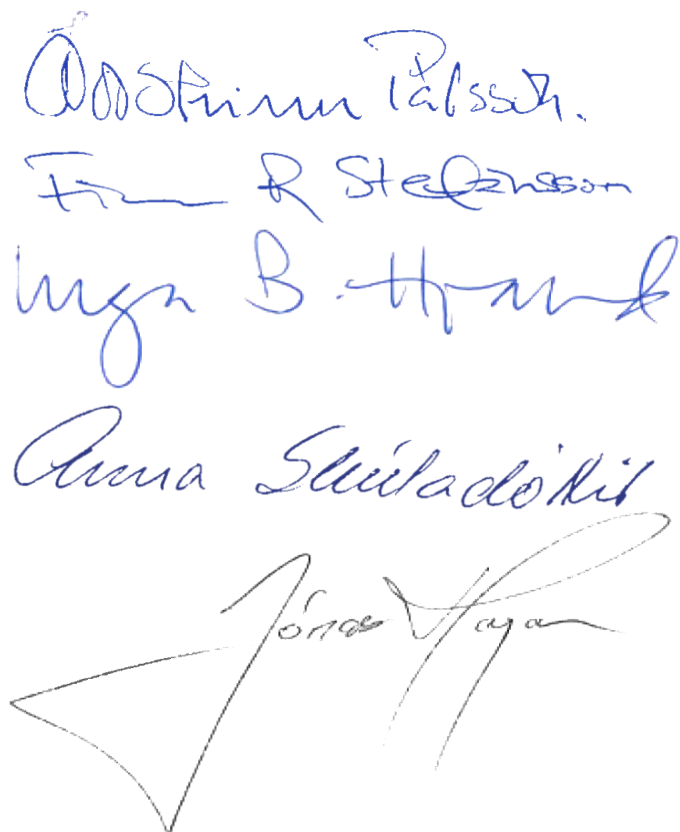 Oddsteinn Pálsson.
Finnur R Stefánsson
Inga B.
Anna Skúladóttir
Jónas Hagan